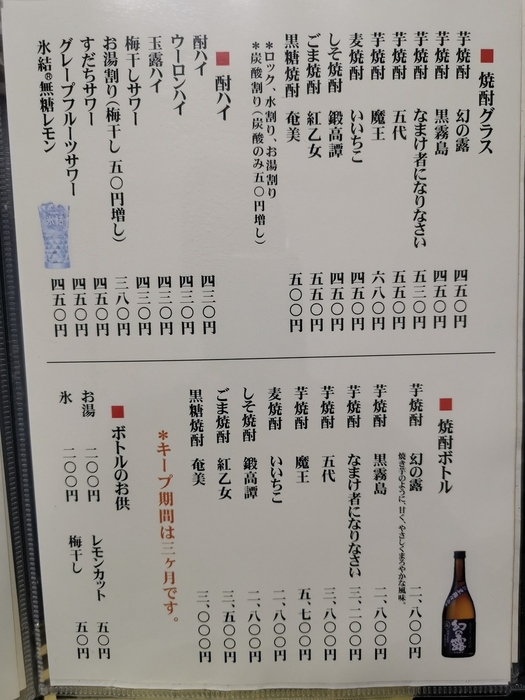 ■ 焼酎グラス
芋焼酎 幻の露 四五〇円
芋焼酎 黒霧島 四五〇円
芋焼酎 なまけ者になりなさい 五三〇円
芋焼酎 五代 五五〇円
芋焼酎 魔王 六八〇円
麦焼酎 いいちこ 四五〇円
しそ焼酎 鍛高譚 四五〇円
ごま焼酎 紅乙女 五五〇円
黒糖焼酎 奄美 五〇〇円
＊ロック、水割り、お湯割り
＊炭酸割り（炭酸のみ五〇円増し）
■ 酎ハイ
酎ハイ 四三〇円
ウーロンハイ 四三〇円
玉露ハイ 四三〇円
梅干しサワー 四三〇円
お湯割り（梅干し 五〇円増し） 三八〇円
すだちサワー 四五〇円
グレープフルーツサワー 四五〇円
氷結®無糖レモン 四五〇円
■ 焼酎ボトル
芋焼酎 幻の露 二、八〇〇円
焼き芋のように、甘く、やさしくまろやかな風味。
芋焼酎 黒霧島 二、八〇〇円
芋焼酎 なまけ者になりなさい 三、二〇〇円
芋焼酎 五代 三、八〇〇円
芋焼酎 魔王 五、七〇〇円
麦焼酎 いいちこ 二、八〇〇円
しそ焼酎 鍛高譚 二、八〇〇円
ごま焼酎 紅乙女 三、五〇〇円
黒糖焼酎 奄美 三、〇〇〇円
＊キープ期間は三ヶ月です。
■ ボトルのお供
お湯 二〇〇円 レモンカット 五〇円
氷 二〇〇円 梅干し 五〇円
幻の露